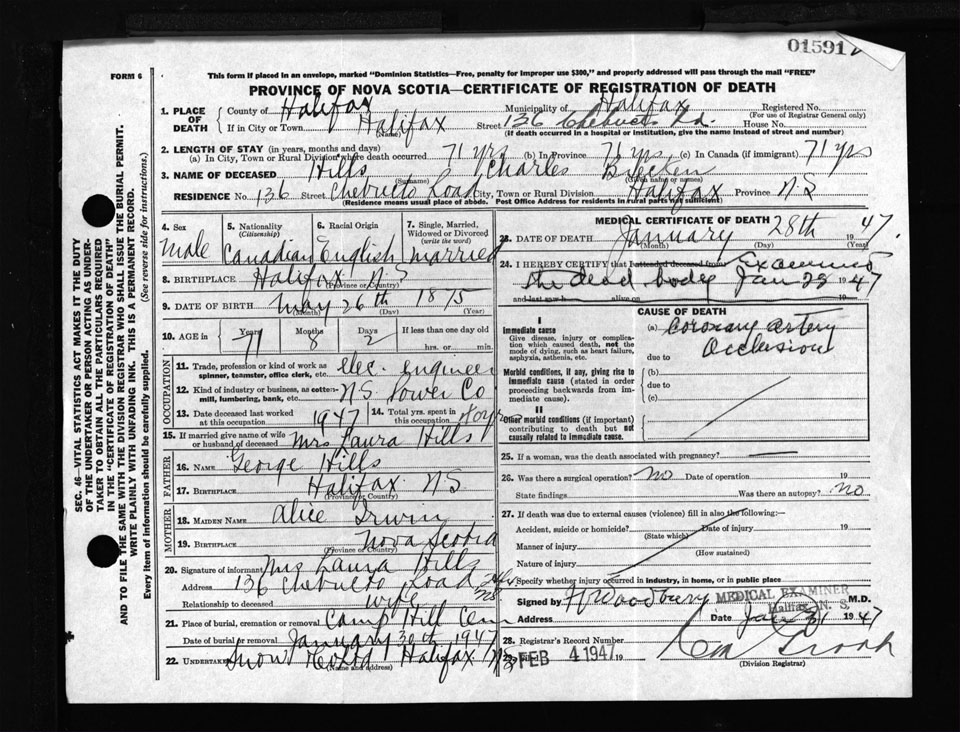 01591
FORM 6
This form if placed in an envelope, marked "Dominion Statistics—Free, penalty for improper use $300," and properly addressed will pass through the mail "FREE"
PROVINCE OF NOVA SCOTIA—CERTIFICATE OF REGISTRATION OF DEATH
SEC. 46—VITAL STATISTICS ACT MAKES IT THE DUTY
OF THE UNDERTAKER OR PERSON ACTING AS UNDER-
TAKER TO OBTAIN ALL THE PARTICULARS REQUIRED
IN THE "CERTIFICATE OF REGISTRATION OF DEATH"
AND TO FILE THE SAME WITH THE DIVISION REGISTRAR WHO SHALL ISSUE THE BURIAL PERMIT.
WRITE PLAINLY WITH UNFADING INK. THIS IS A PERMANENT RECORD.
Every item of information should be carefully supplied. (See reverse side for instructions.)
1. PLACE OF DEATH
County of Halifax Municipality of Halifax Registered No.
(For use of Registrar General only)
If in City or Town Halifax Street 136 Chebucto Rd. House No.
(If death occurred in a hospital or institution, give the name instead of street and number)
2. LENGTH OF STAY (in years, months and days)
(a) In City, Town or Rural Division where death occurred 71 yrs (b) In Province 71 yrs (c) In Canada (if immigrant) 71 yrs
3. NAME OF DECEASED Hills Charles
(Surname) (Given name or names)
RESIDENCE No. 136 Street Chebucto Road City, Town or Rural Division Halifax Province N S
(Residence means usual place of abode. Post Office Address for residents in rural parts not sufficient)
4. Sex
Male
5. Nationality
(Citizenship)
Canadian
6. Racial Origin
English
7. Single, Married, Widowed or Divorced
(write the word)
Married
8. BIRTHPLACE Halifax N S
(Province or Country)
9. DATE OF BIRTH May 26th 1875
(Month) (Day) (Year)
10. AGE in
Years 71
Months 8
Days 2
If less than one day old
hrs. or min.
OCCUPATION
11. Trade, profession or kind of work as
spinner, teamster, office clerk, etc. elec. engineer
12. Kind of industry or business, as cotten-
mill, lumbering, bank, etc. N S Power Co
13. Date deceased last worked
at this occupation 1947
14. Total yrs. spent in
this occupation
15. If married give name of wife
or husband of deceased Mrs Laura Hills
FATHER
16. NAME George Hills
17. BIRTHPLACE Halifax N S
(Province or Country)
MOTHER
18. MAIDEN NAME Alice Irwin
19. BIRTHPLACE Nova Scotia
(Province or Country)
20. Signature of informant Mrs Laura Hills
Address 136 Chebucto Road Hfx NS
Relationship to deceased wife
21. Place of burial, cremation or removal Camp Hill Cem
Date of burial or removal January 30th 1947
22. Undertaker Snow Halifax N S
(Name and address)
MEDICAL CERTIFICATE OF DEATH
23. DATE OF DEATH January 28th 1947
(Month) (Day) (Year)
24. I HEREBY CERTIFY that I attended deceased from Examined
the dead body Jan 29 1947
and last saw h alive on 19
CAUSE OF DEATH
I
Immediate cause
Give disease, injury or complication which caused death, not the mode of dying, such as heart failure, asphyxia, asthenia, etc.
(a) Coronary artery
Occlusion
due to
Morbid conditions, if any, giving rise to immediate cause (stated in order proceeding backwards from immediate cause).
(b)
due to
(c)
II
Other morbid conditions (if important) contributing to death but not causally related to immediate cause.
25. If a woman, was the death associated with pregnancy?
26. Was there a surgical operation? No Date of operation 19
State findings Was there an autopsy? No
27. If death was due to external causes (violence) fill in also the following:—
Accident, suicide or homicide? Date of injury 19
(State which)
Manner of injury
(How sustained)
Nature of injury
Specify whether injury occurred in industry, in home, or in public place
Signed by Woodbury M.D.
MEDICAL EXAMINER
Halifax N. S.
Address Date Jan 31 1947
28. Registrar's Record Number
29. FEB 4 1947 19
(Division Registrar)